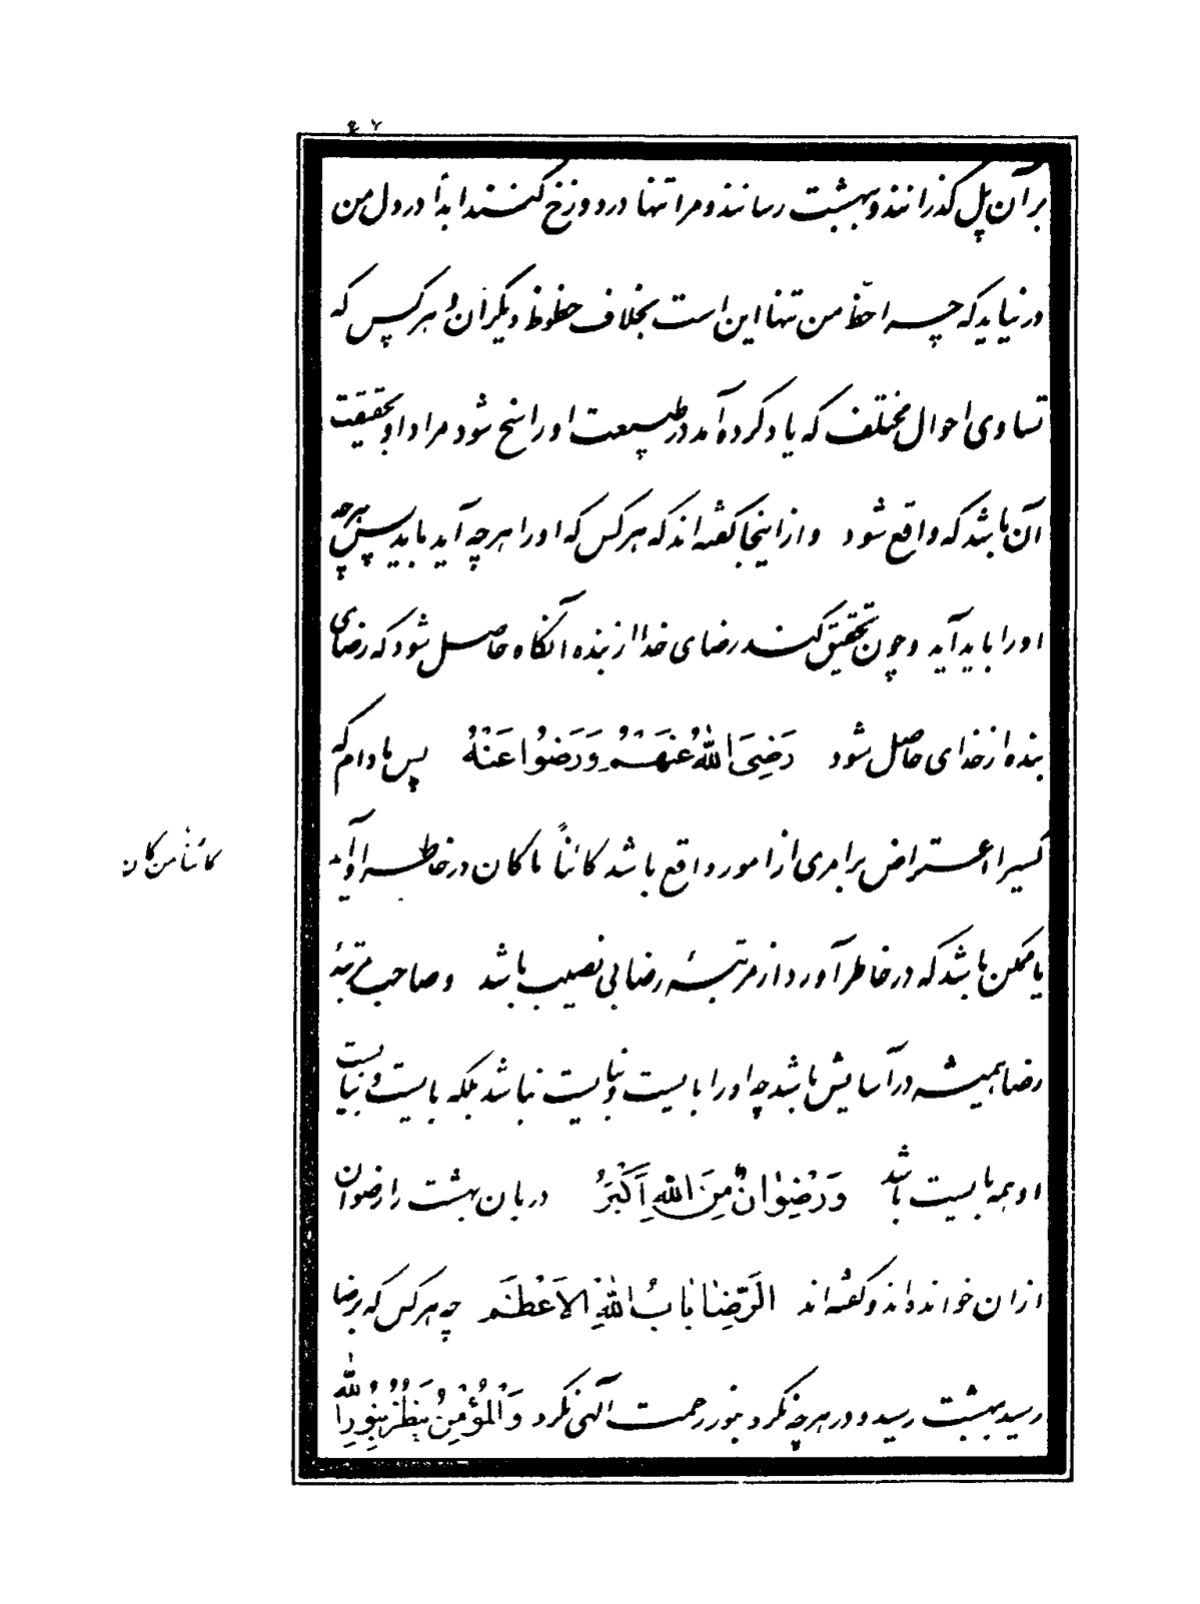 ۶۷
بر آن پل گذرانند و ببهشت رسانند و مرا تنها در دوزخ کنند ابداً در دل من
در نیاید که چرا حظّ من تنها این است بخلاف حظوظ دیگران و هر کس که
تساوی احوال مختلف که یاد کرده آمد در طبیعت او راسخ شود مراد او بحقیقت
آن باشد که واقع شود و از اینجا گفته‌اند که هر کس که او را هر چه آید باید پس هر چه
او را باید آید و چون تحقیق کنند رضای خدا از بنده آنگاه حاصل شود که رضای
بنده از خدای حاصل شود رَضِیَ اللهُ عَنْهُمْ وَرَضُوا عَنْهُ پس مادام که
کسیرا اعتراض بر امری از امور واقع باشد کائناً ما کان در خاطر او آید
کائنا من کان
یا ممکن باشد که در خاطر آورد از مرتبهٔ رضا بی نصیب باشد و صاحب مرتبهٔ
رضا همیشه در آسایش باشد چه او را بایست و نبایست نباشد بلکه بایست و نبایست
او همه بایست باشد وَرِضْوانٌ مِنَ اللهِ اَکْبَرُ دربان بهشت را رضوان
ازان خوانده‌اند و گفته‌اند الرِّضا بابُ اللهِ الاَعْظَم چه هر کس که برضا
رسید ببهشت رسید و در هر چه نگرد بنور رحمت الهی نگرد وَالْمُؤْمِنُ یَنْظُرُ بِنُورِ اللهِ